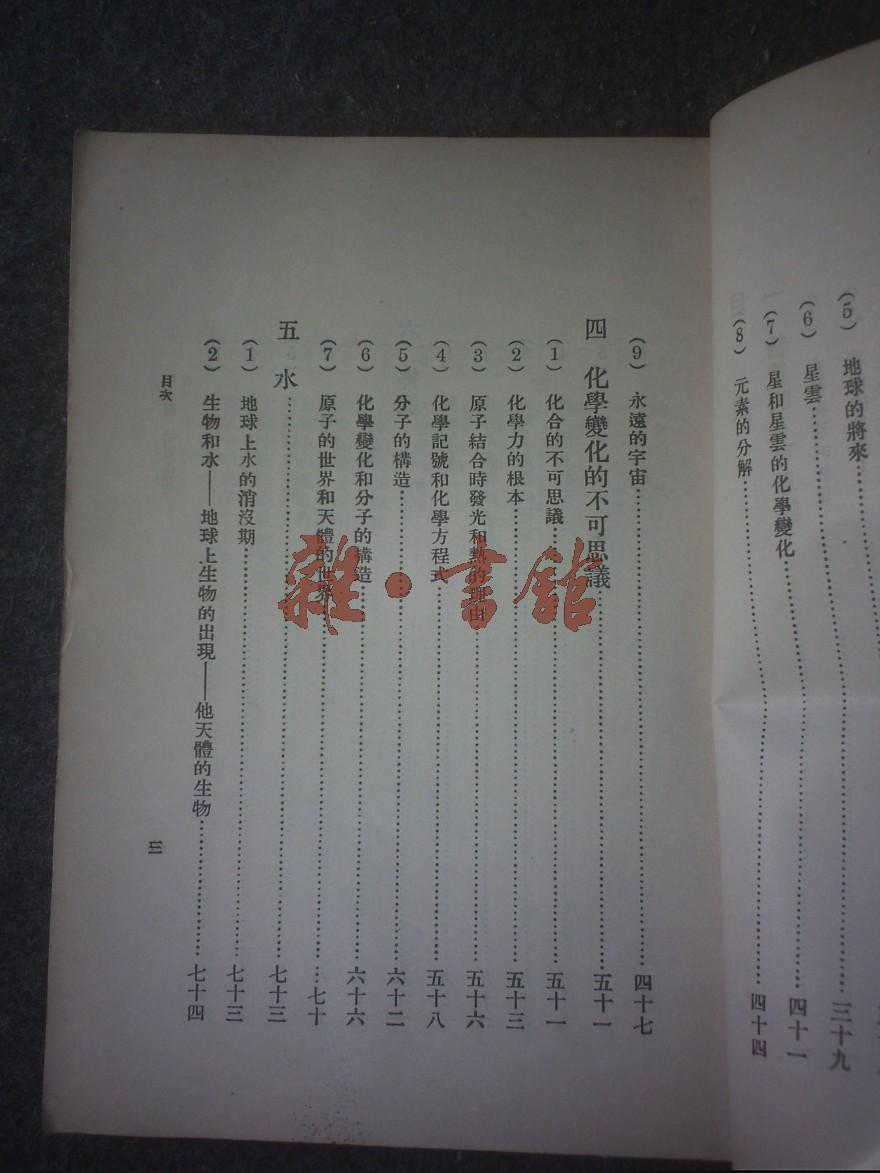 (5) 地球的將來……三十九
(6) 星雲……四十一
(7) 星和星雲的化學變化
(8) 元素的分解……四十四
(9) 永遠的宇宙……四十七
四 化學變化的不可思議……五十一
(1) 化合的不可思議……五十一
(2) 化學力的根本……五十三
(3) 原子結合時發光和熱的理由……五十六
(4) 化學記號和化學方程式……五十八
(5) 分子的構造……六十二
(6) 化學變化和分子的構造……六十六
(7) 原子的世界和天體的世界……七十
五 水……七十三
(1) 地球上水的消沒期……七十三
(2) 生物和水——地球上生物的出現——他天體的生物……七十四
目次
三
雜·書館